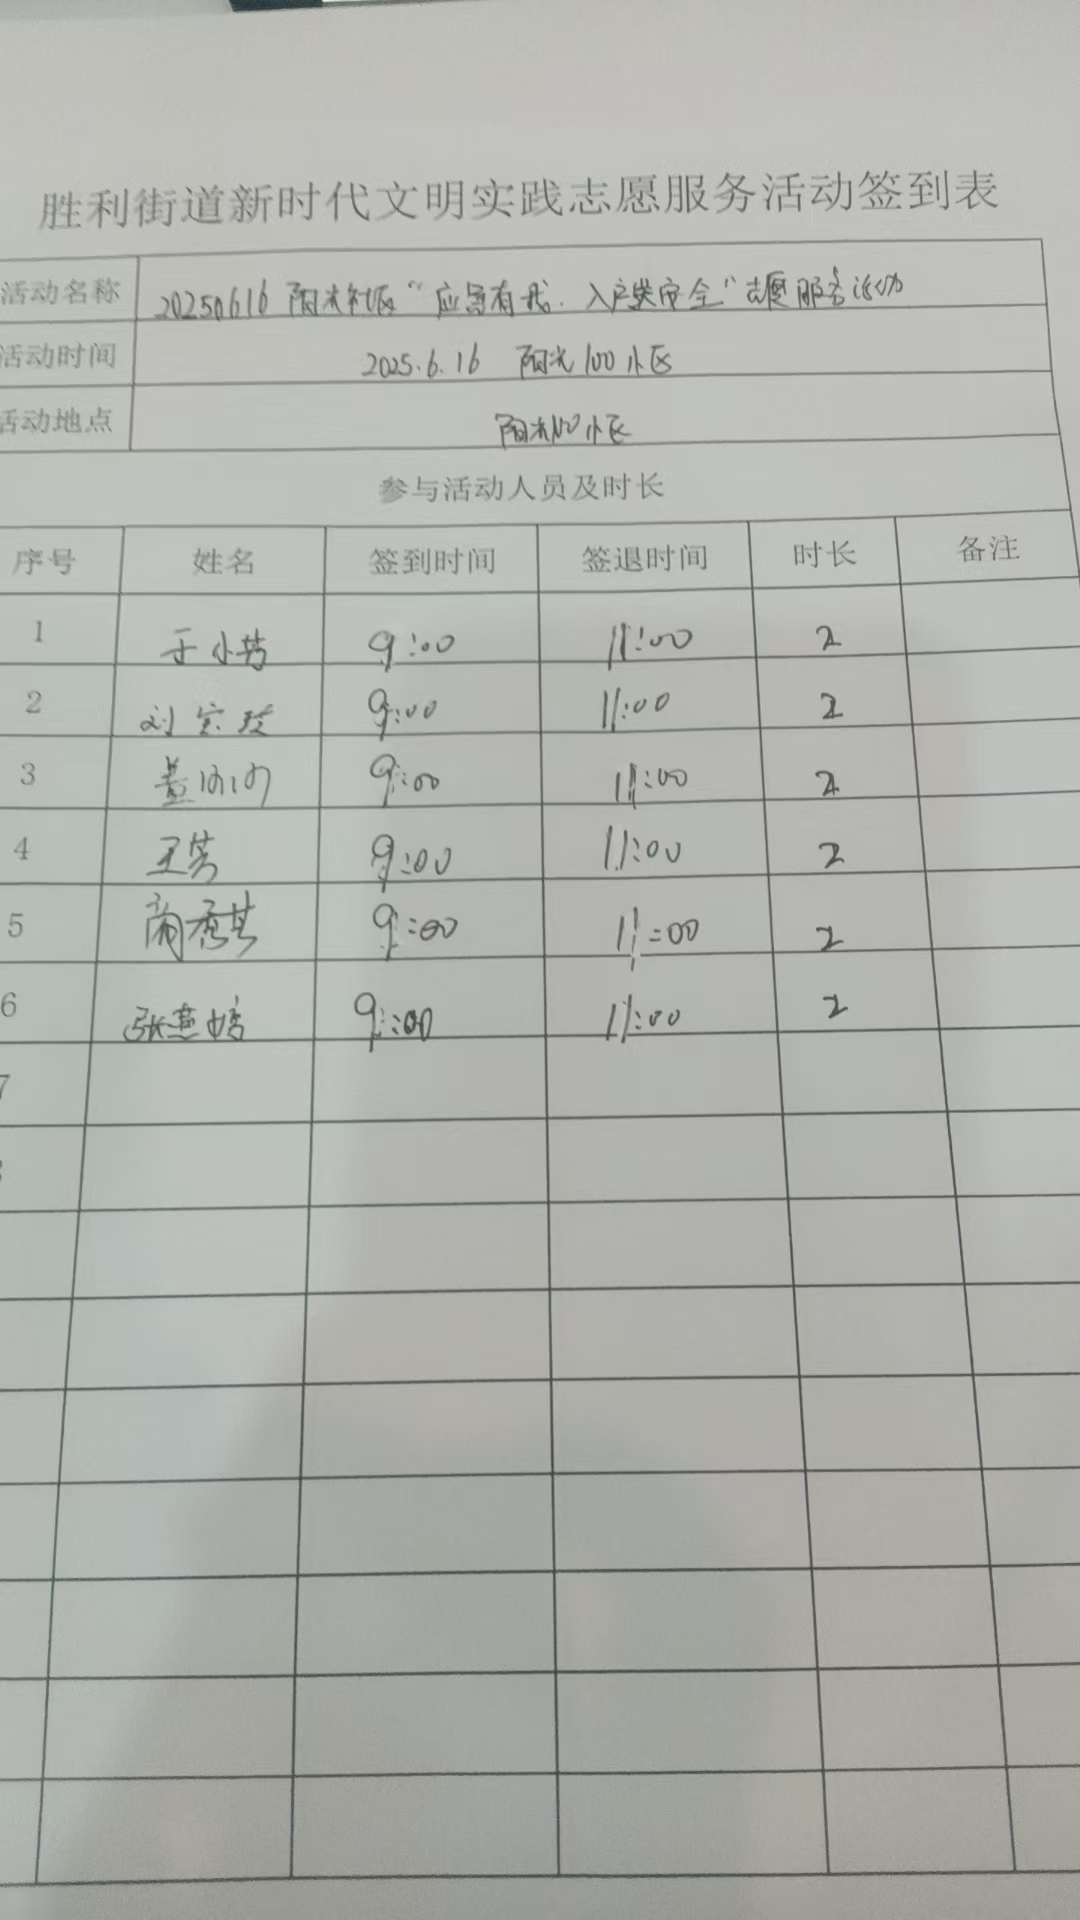 胜利街道新时代文明实践志愿服务活动签到表
活动名称 20250616 阳光社区“应急有我.入户送安全”志愿服务活动
活动时间 2025.6.16 阳光100小区
活动地点 阳光100小区
参与活动人员及时长
序号 姓名 签到时间 签退时间 时长 备注
1 于小芳 9:00 11:00 2
2 刘 9:00 11:00 2
3 9:00 11:00 2
4 王芳 9:00 11:00 2
5 9:00 11:00 2
6 张燕婷 9:00 11:00 2
7